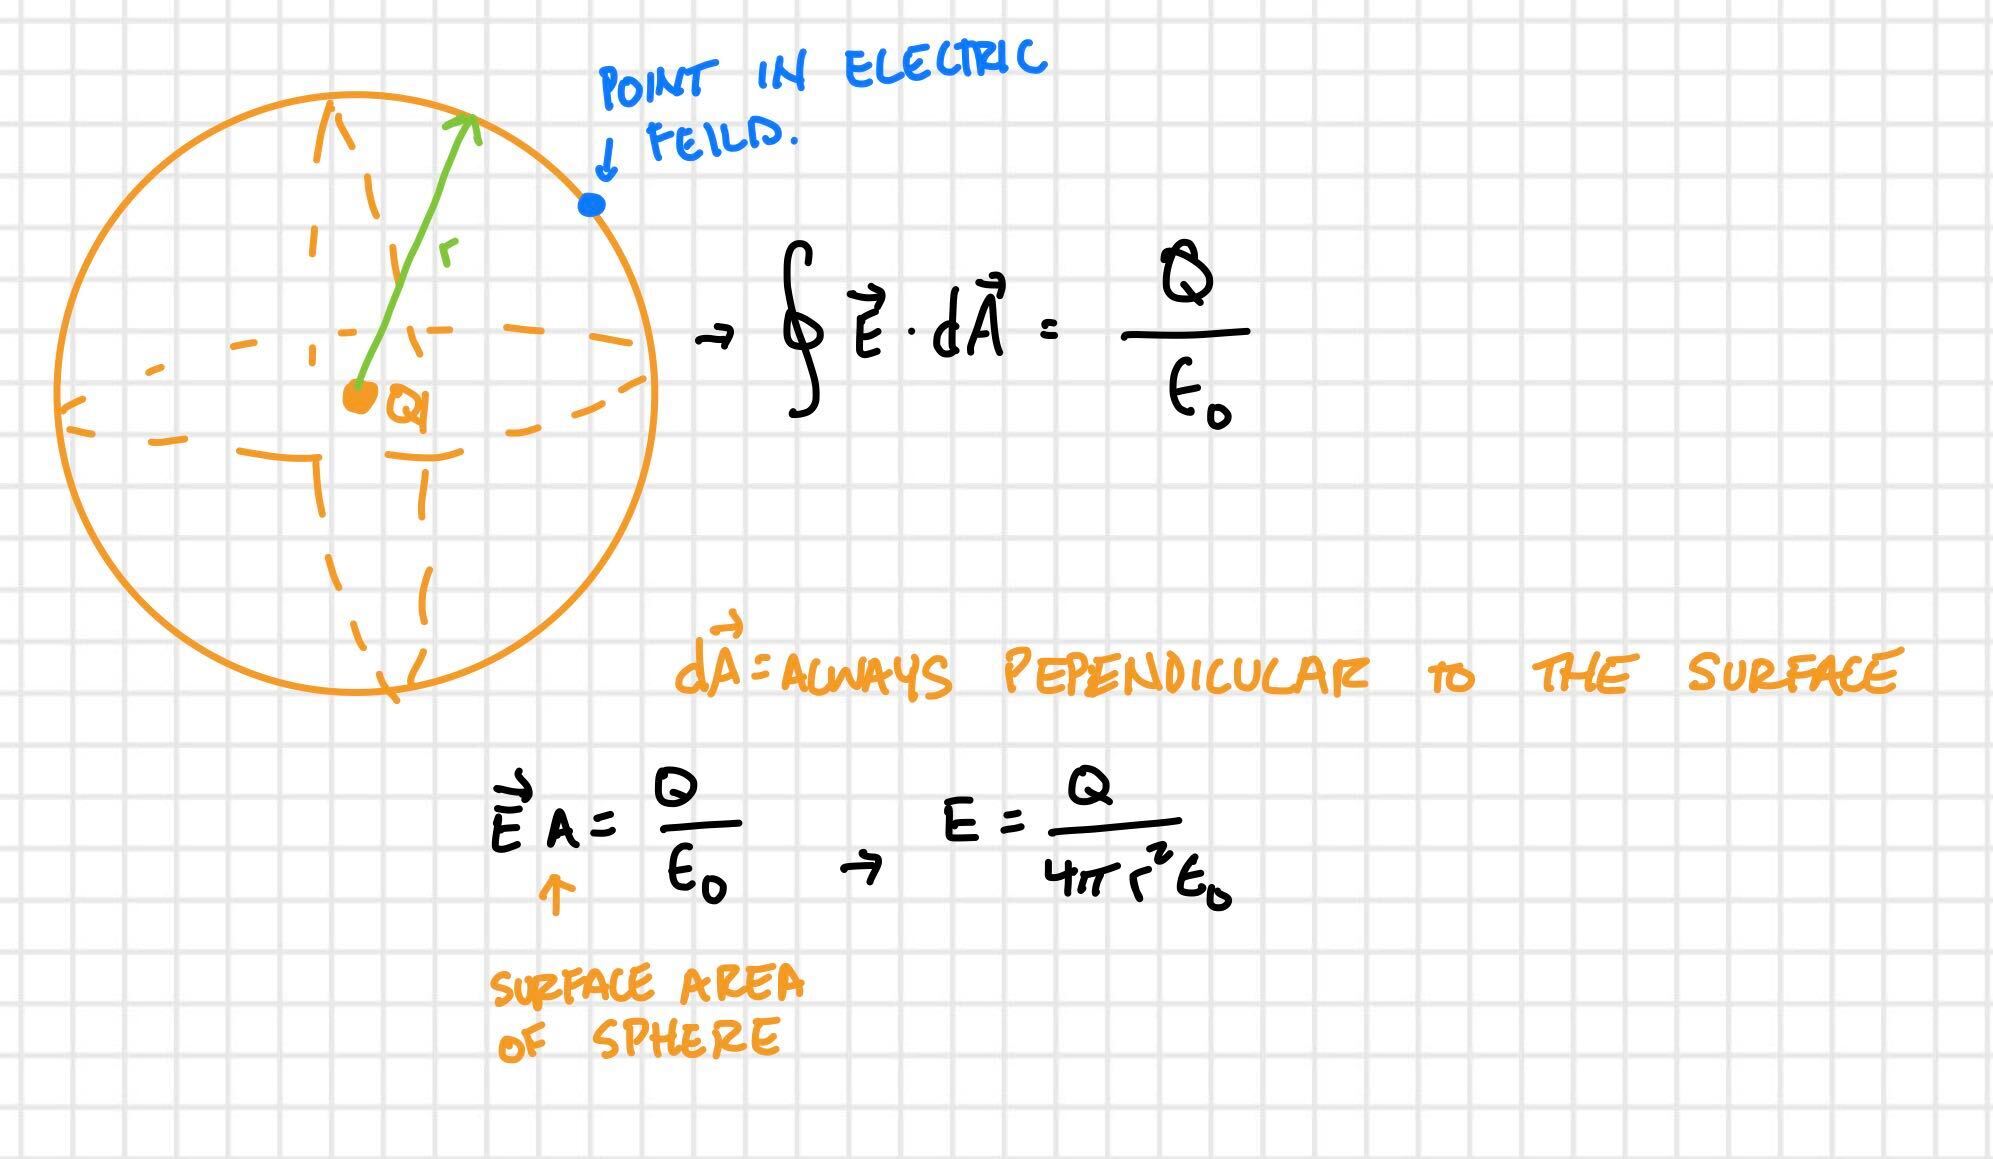 POINT IN ELECTRIC
↓ FEILD.
r
→ ∮ E⃗ · dA⃗ = Q / ε₀
Q
dA⃗ = ALWAYS PEPENDICULAR TO THE SURFACE
E⃗ A = Q / ε₀ → E = Q / 4πr²ε₀
↑
SURFACE AREA
OF SPHERE